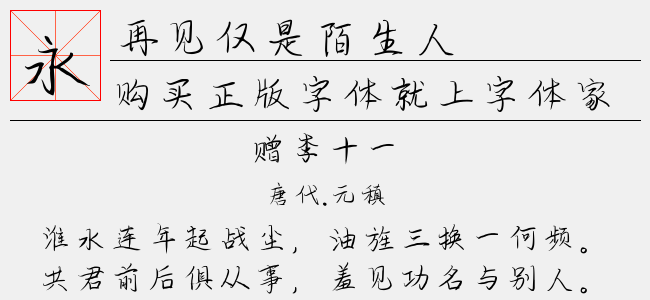 永
再见仅是陌生人
购买正版字体就上字体家
赠李十一
唐代.元稹
淮水连年起战尘，油旌三换一何频。
共君前后俱从事，羞见功名与别人。